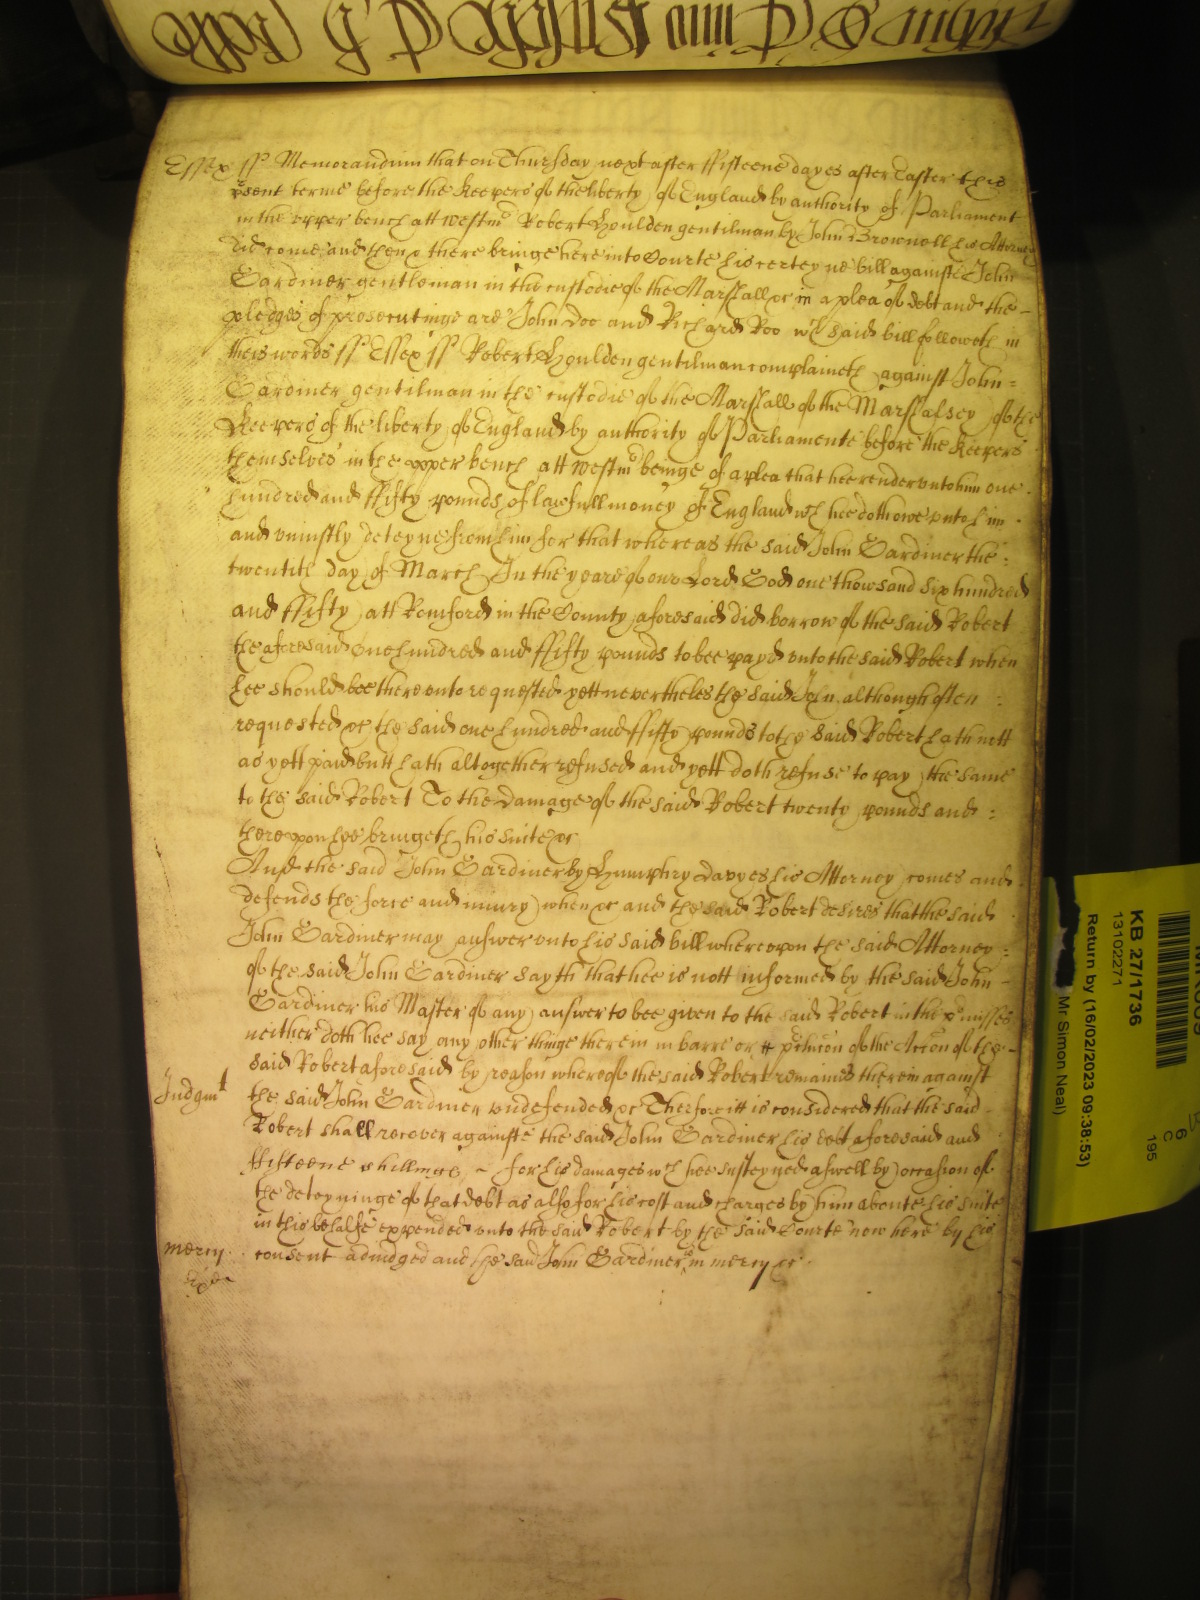 Essex ss Memorandum that on Thursday next after ffifteene dayes after Easter this
psent terme before the Keepers of the liberty of England by authority of Parliament
in the vpper bench att Westmr Robert Houlden gentilman by John Brownoll his Attorney
did come and then & there bringe here into Courte his certeyne bill against John
Gardiner gentleman in the custodie of the Marshall &c in a plea of debt and the
pledges of prosecutinge are John Doo and Richard Roo wch said bill followeth in
theis words ss Essex ss Robert Houlden gentilman complaineth against John
Gardiner gentilman in the custodie of the Marshall of the Marshalsey of the
Keepers of the liberty of England by authority of Parliamente before the Keepers
themselves in the vpper bench att Westmr beinge of a plea that hee render vnto him one
hundred and ffifty pounds of lawfull money of England wch hee doth owe vnto him
and vniustly deteyne from him for that whereas the said John Gardiner the
twentith day of March In the yeare of our Lord God one thowsand six hundred
and ffifty att Romford in the County aforesaid did borrow of the said Robert
the aforesaid one hundred and ffifty pounds to bee payd vnto the said Robert when
hee should bee therevnto requested yett nevertheles the said John although often
requested &c the said one hundred and ffifty pounds to the said Robert hath nott
as yett paid butt hath altogether refused and yett doth refuse to pay the same
to the said Robert To the damage of the said Robert twenty pounds and
therevpon hee bringeth his suite &c
And the said John Gardiner by Humphry Davyes his Attorney comes and
defends the force and iniury when &c and the said Robert desires that the said
John Gardiner may answer vnto his said bill wherevpon the said Attorney
of the said John Gardiner sayth that hee is nott informed by the said John
Gardiner his Master of any answer to bee given to the said Robert in the pmisses
neither doth hee say any other thinge therein in barre or pclucon of the Accon of the
said Robert aforesaid by reason whereof the said Robert remaines therein against
Judgmt the said John Gardiner vndefended &c Therfore itt is considered that the said
Robert shall recover againste the said John Gardiner his debt aforesaid and
ffifteene shillings for his damages wch hee susteyned aswell by occasion of
the deteyninge of that debt as also for his cost and charges by him aboute his suite
in this behalfe expended vnto the said Robert by the said Courte now here by his
mercy consent adiudged and the said John Gardiner in mercy &c
KB 27/1736
13-02271
Return by (16/02/2023 09:38:53)
Mr Simon Neal)
195
C
6